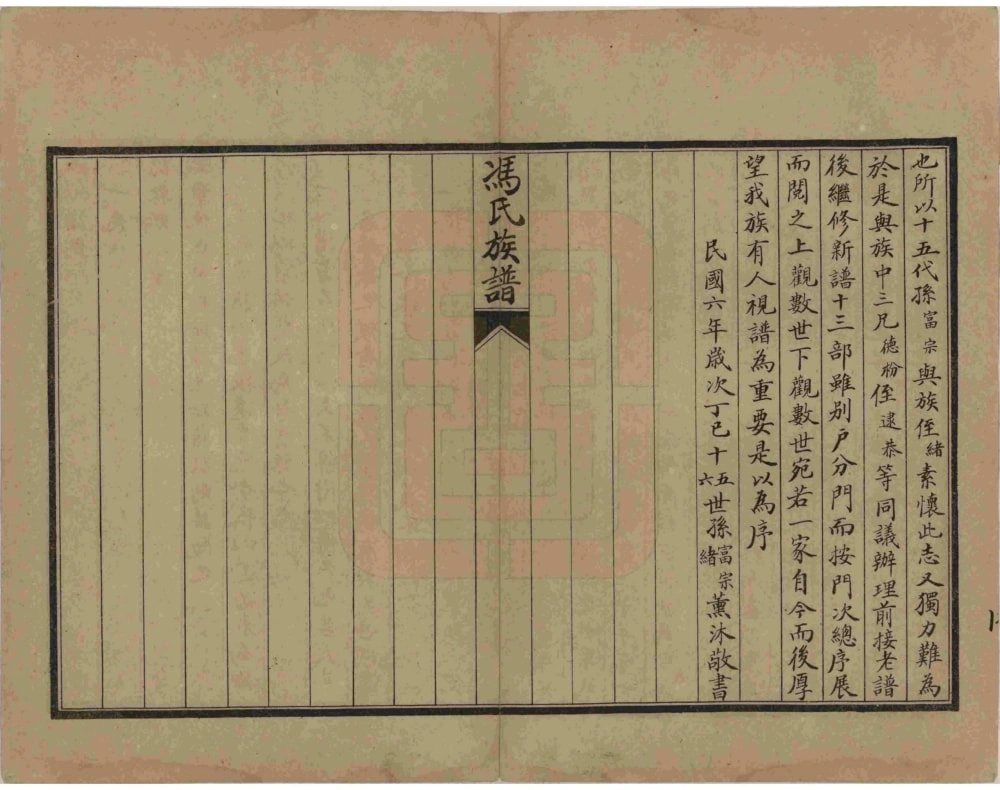 也所以十五代孫富宗與族侄緒素懷此志又獨力難為
於是與族中三凡德粉侄逮恭等同議辦理前接老譜
後繼修新譜十三部雖別户分門而按門次總序展
而閲之上觀數世下觀數世宛若一家自今而後厚
望我族有人視譜為重要是以為序
民國六年歲次丁巳十五六世孫富宗緒薰沐敬書
馮氏族譜